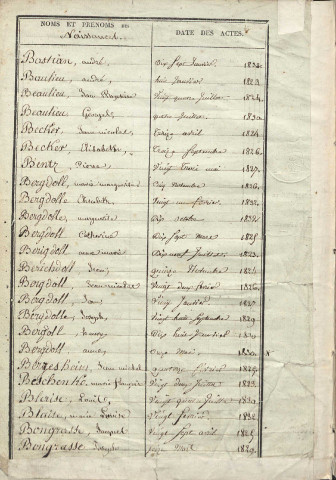 NOMS ET PRÉNOMS des
Naissances.
DATE DES ACTES.
Bastian, andré, Dix Sept Janvier
Beaulieu, andré, Janvier 1823.
Beaulieu, Jean Baptiste Vingt quatre Juillet 1824.
Beaulieu, Joseph, quatre Janvier 1830
Becker, Jean nicolas, Treize avril 1824.
Becker, Elisabeth, Treize Septembre 1826.
Bentz, Pierre, Vingt Trois mai 1827.
Bergdoll, marie marguerite Cinq Novembre 1826.
Bergdolle, Elisabeth, Vingt un février
Bergdolle, marguerite Dix octobre
Bergdoll, Catherine Dix Sept mars 1825.
Bergdoll, anne marie Dix neuf Juillet 1823.
Berichdoll, Jean, quinze Novembre 1824.
Bergdoll, Jean nicolas, Vingt deux février 1826.
Bergdoll, Jean, Vingt Janvier
Bergdolle, Joseph, Vingt huit Septembre 1829.
Bergdoll, Dix huit Janvier
Bergdoll, onze Mai, 1830.
Bergesheim, Jean michel quatorze février
Beschenkie, marie françoise Vingt deux Juillet
Blaise, Louise, Vingt quatre Juillet 1830
Blaise, marie Louise Vingt février 1832
Bongrasse, Vingt Sept août 1825.
Bongrasse Joseph, Mars 1829.